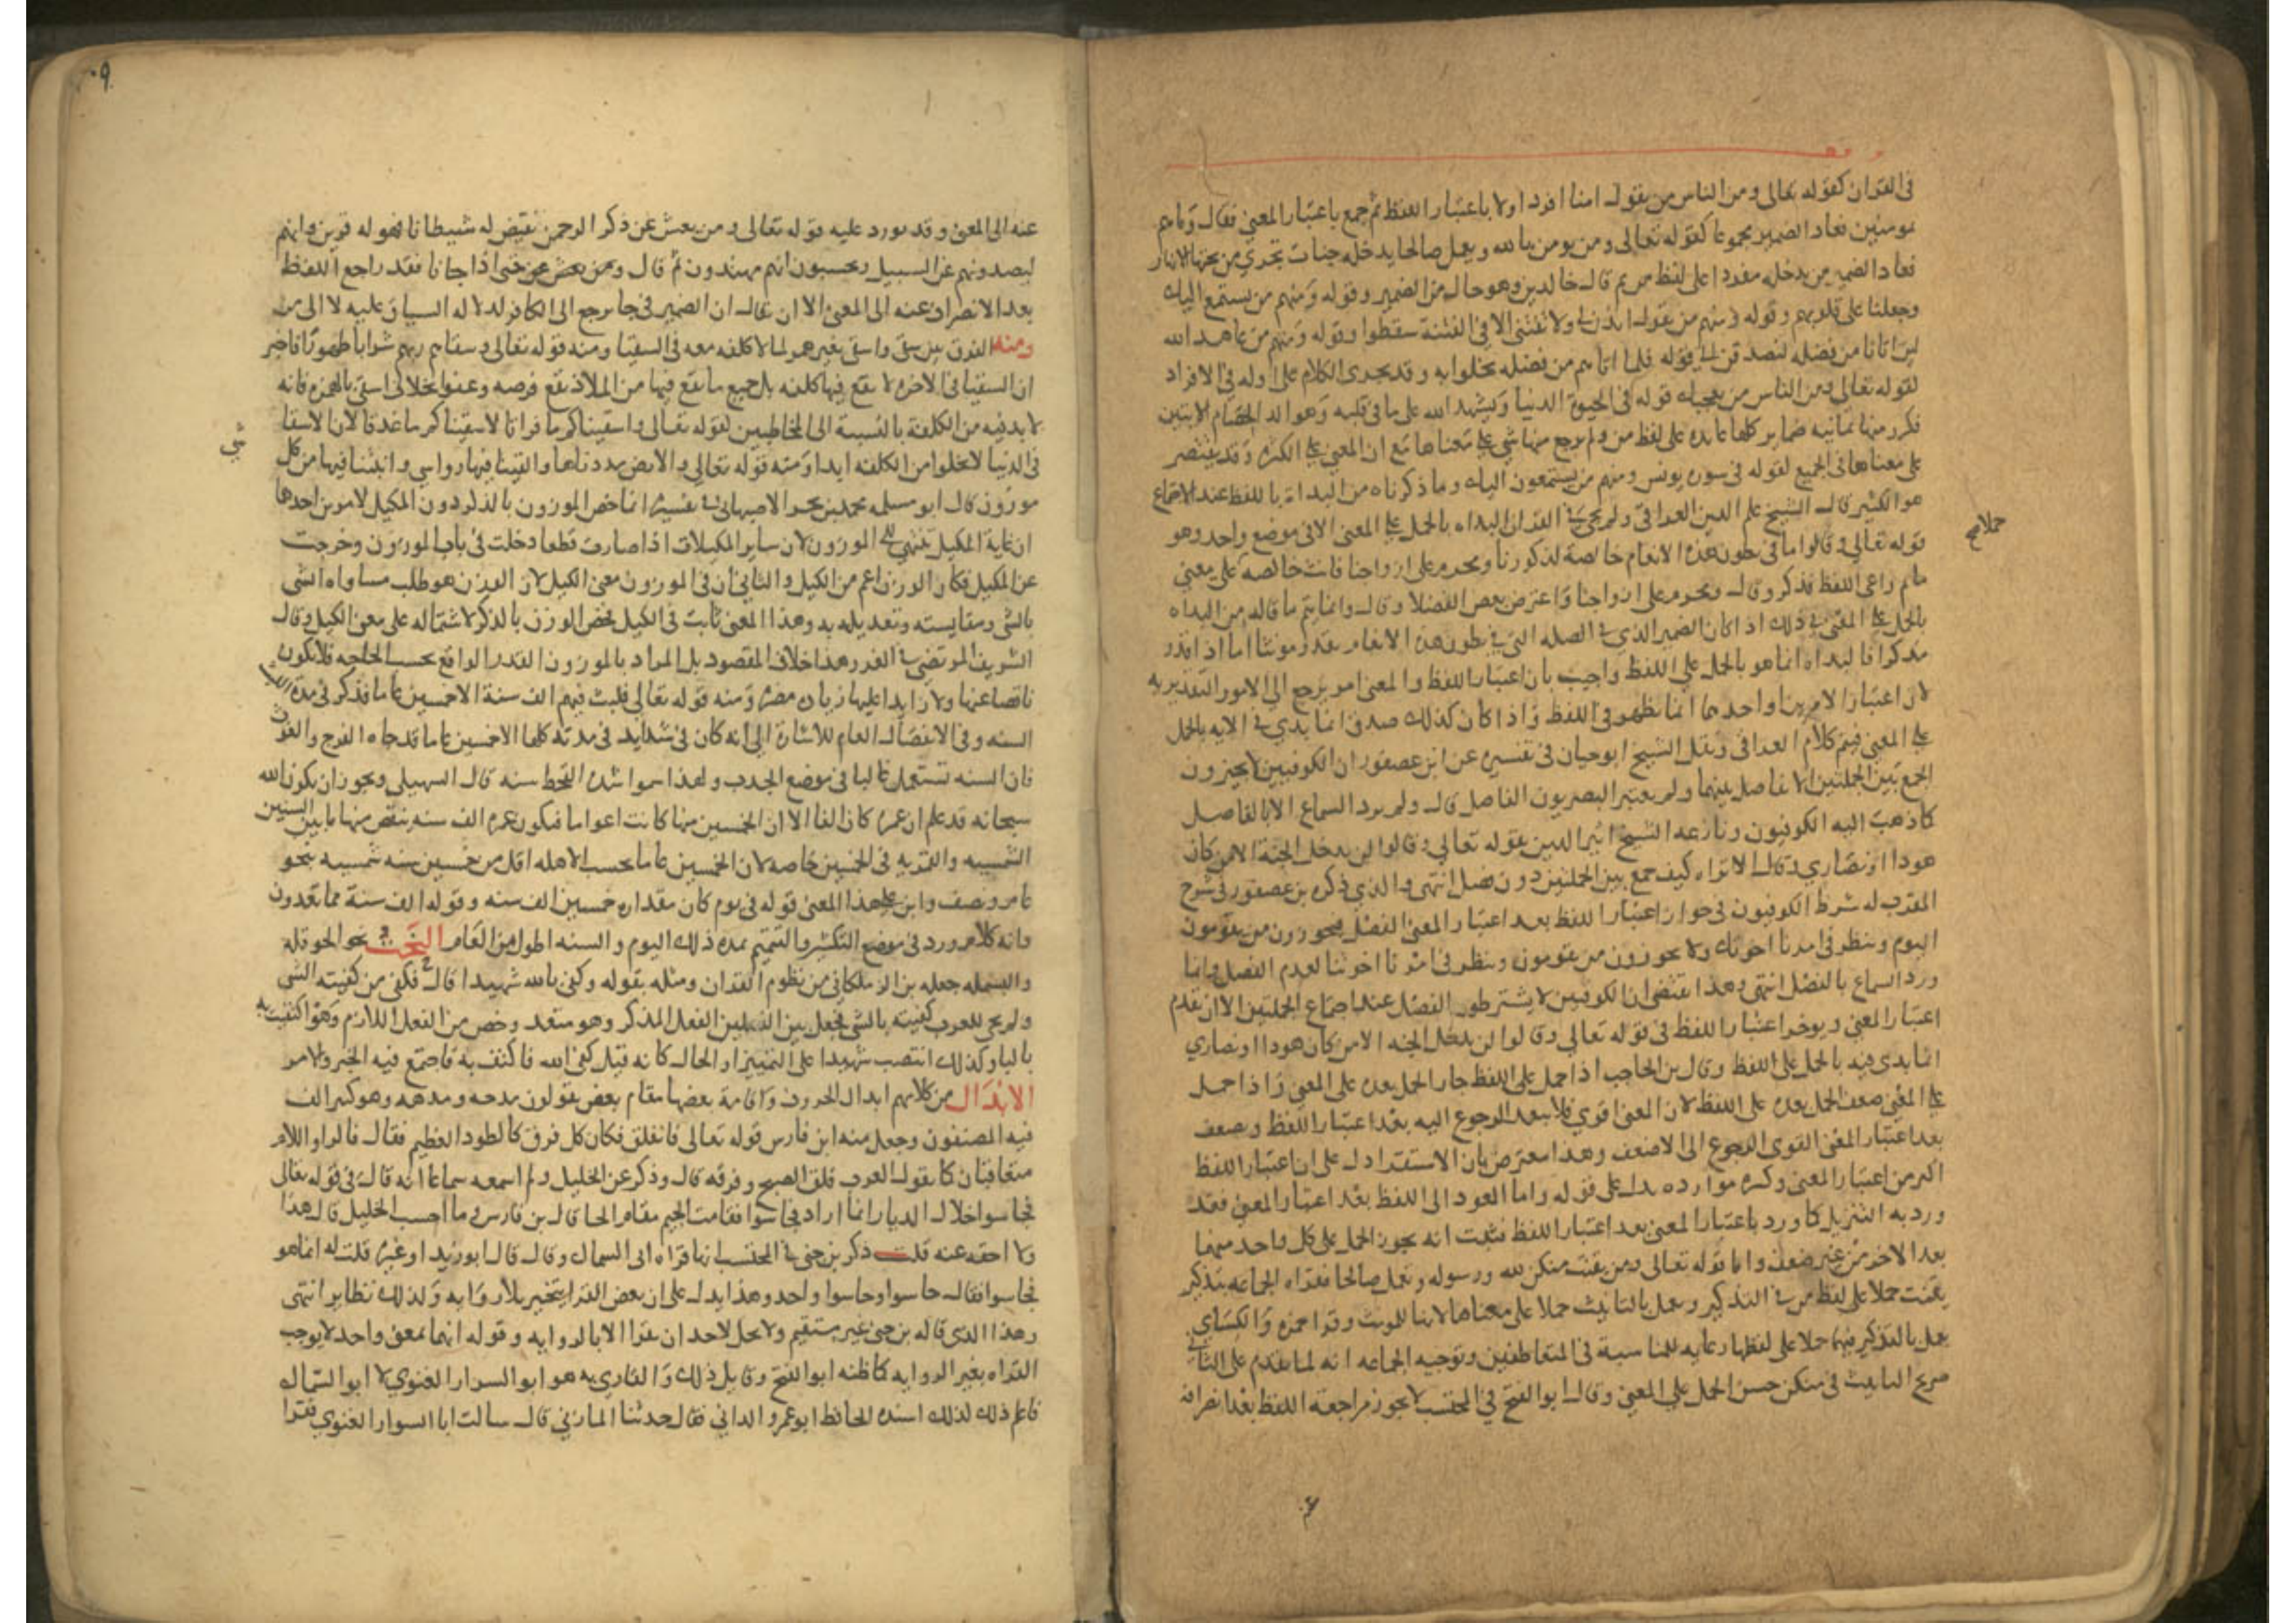 في القران كقوله تعالى ومن الناس من يقول امنا افرد اولا باعتبار اللفظ ثم جمع باعتبار المعنى فقال وما هم
بمومنين فعاد الضمير مجموعا كقوله تعالى ومن يومن بالله ويعمل صالحا يدخله جنات تجري من تحتها الانهار
فعاد الضمير من يدخله مفردا على لفظ من ثم قال خالدين وهو حال من الضمير وقوله ومنهم من يستمع اليك
وجعلنا على قلوبهم وقوله ومنهم من يقول ايذن لي ولا تفتني الا في الفتنة سقطوا وقوله ومنهم من عاهد الله
لين اتانا من فضله لنصدقن الى قوله فلما اتاهم من فضله بخلوا به وقد يجري الكلام على اوله في الافراد
لقوله تعالى ومن الناس من يعجبك قوله في الحيوة الدنيا ويشهد الله على ما في قلبه وهو الد الخصام الايتين
فكرر منها ثمانيه ضماير كلها عايده على لفظ من ولم يرجع منها شي على معناها مع ان المعنى على الكثره وقد يقتصر
على معناها في الجميع لقوله في سوره يونس ومنهم من يستمعون اليك وما ذكرناه من البداة باللفظ عند الاجتماع
هو الكثير قال الشيخ علم الدين العراقي ولم يجي في القران البداه بالحمل على المعنى الا في موضع واحد وهو
حملا مح
قوله تعالى وقالوا ما في بطون هذه الانعام خالصة لذكورنا ومحرم على ازواجنا فانث خالصه على معنى
ما ثم راعى اللفظ فذكر وقال ومحرم على ازواجنا واعترض بعض الفضلا وقال وانما يتم ما قاله من البداه
بالحمل على المعنى في ذلك اذا كان الضمير الذي في الصله التي في بطون هذه الانعام يقدر مونثا اما اذا قدر
مذكرا فالبداه انما هو بالحمل على اللفظ واجيب بان اعتبار اللفظ والمعنى امر يرجع الى الامور التقديريه
لان اعتبار الامرين او احدهما انما يظهر في اللفظ واذا كان كذلك صدق انما بدي في الايه بالحمل
على المعنى فيتم كلام العراقي ونقل الشيخ ابو حيان في تفسيره عن ابن عصفور ان الكوفيين لا يجيزون
الجمع بين الجملتين الا بفاصل بينهما ولم يعتبر البصريون الفاصل قال ولم يرد السماع الا بالفاصل
كما ذهب اليه الكوفيون ونازعه الشيخ اثير الدين بقوله تعالى وقالوا لن يدخل الجنة الا من كان
هودا او نصارى وقال الا تراه كيف جمع بين الجملتين دون فصل انتهى والذي ذكره بن عصفور في شرح
المقرب له شرط الكوفيون في جواز اعتبار اللفظ بعد اعتبار المعنى الفصل فيجوزون من يقومون
اليوم وينظر في امرنا اخوتك ولا يجوزون من يقومون وينظر في امرنا اخوتنا لعدم الفصل وانما
ورد السماع بالفصل انتهى وهذا يقتضى ان الكوفيين لا يشترطون الفصل عند اجتماع الجملتين الا ان يقدم
اعتبار المعنى ويوخر اعتبار اللفظ في قوله تعالى وقالوا لن يدخل الجنه الا من كان هودا او نصارى
انما بدى فيه بالحمل على اللفظ وقال بن الحاجب اذا حمل على اللفظ جاز الحمل بعده على المعنى واذا حمل
على المعنى ضعف الحمل بعده على اللفظ لان المعنى اقوى فلا يبعد الرجوع اليه بعد اعتبار اللفظ ويضعف
بعد اعتبار المعنى القوى الرجوع الى الاضعف وهذا معترض بان الاستقرا دل على ان اعتبار اللفظ
اكثر من اعتبار المعنى وكثره موارده يدل على قوله واما العود الى اللفظ بعد اعتبار المعنى فقد
ورد به التنزيل كما ورد باعتبار المعنى بعد اعتبار اللفظ فثبت انه يجوز الحمل على كل واحد منهما
بعد الاخر من غير ضعف واما قوله تعالى ومن يقنت منكن لله ورسوله وتعمل صالحا فقراه الجماعه بتذكير
يقنت حملا على لفظ من في التذكير وتعمل بالتانيث حملا على معناها لانها للمونث وقرا حمزه والكساي
يعمل بالتذكير فيهما حملا على لفظها رعايه للمناسبة في المتعاطفين وتوجيه الجماعه انه لما تقدم على الثاني
صريح التانيث في منكن حسن الحمل على المعنى وقال ابو الفتح في المحتسب لا يجوز مراجعة اللفظ بعد انصرافه
عنه الى المعنى وقد يورد عليه قوله تعالى ومن يعش عن ذكر الرحمن نقيض له شيطانا فهو له قرين وانهم
ليصدونهم عن السبيل ويحسبون انهم مهتدون ثم قال حتى اذا جانا فقد راجع اللفظ
بعد الانصراف عنه الى المعنى الا ان يقال ان الضمير في جا يرجع الى الكافر لدلاله السياق عليه لا الى من
ومنه الفرق بين سقى واسقى بغير همز لما لا كلفه معه في السقيا ومنه قوله تعالى وسقاهم ربهم شرابا طهورا فاخبر
ان السقيا في الاخره لا يقع فيها كلفه بل جميع ما يقع فيها من الملاذ يقع فرصه وعفوا بخلاف اسقى بالهمزه فانه
لا بد فيه من الكلفة بالنسبة الى المخاطبين لقوله تعالى واسقيناكم ما فراتا لاسقيناكم ما غدقا لان الاسقا
في الدنيا لا يخلوا من الكلفه ابدا ومنه قوله تعالى والارض مددناها والقينا فيها رواسي وانبتنا فيها من كل
شي
موزون قال ابو مسلمه محمد بن بحر الاصبهاني في تفسيره انما خص الموزون بالذكر دون المكيل لامرين احدها
ان غاية المكيل ينتهي الى الموزون لان ساير المكيلات اذا صارت قطعا دخلت في باب الموزون وخرجت
عن المكيل فكان الوزن اعم من الكيل والثاني ان في الموزون معنى الكيل لان الوزن هو طلب مساواه الشى
بالشى ومقايسته وتعديله به وهذا المعنى ثابت في الكيل فخص الوزن بالذكر لاشتماله على معنى الكيل وقال
الشريف المرتضى في الغرر هذا خلاف المقصود بل المراد بالموزون القدر الواقع بحسب الحاجه فلا يكون
ناقصا عنها ولا زايدا عليها زياده مضره ومنه قوله تعالى فلبث فيهم الف سنة الا خمسين عاما فذكر في مدة اللبث
السنه وفي الانفصال العام للاشارة الى انه كان في شدايد في مدته كلها الا خمسين عاما قد جاه الفرج والغوث
فان السنه تستعمل غالبا في موضع الجدب ولهذا سموا شده القحط سنه قال السهيلي ويجوز ان يكون الله
سبحانه قد علم ان عمره كان الفا الا ان الخمسين منها كانت اعواما فيكون عمره الف سنه ينقص منها ما بين السنين
الشمسيه والقمريه في الخمسين خاصه لان الخمسين عاما بحسب الاهله اقل من خمسين سنه شمسيه بنحو
عام ونصف وابن على هذا المعنى قوله في يوم كان مقداره خمسين الف سنه وقوله الف سنة مما تعدون
فانه كلام ورد في موضع التكثير والتتميم بمده ذلك اليوم والسنه اطول من العام النحت نحو الحوقله
والبسمله جعله بن الزملكاني من نظوم القران ومثله بقوله وكفى بالله شهيدا قال فكفى من كفيته الشى
ولم يجي للعرب كفيته بالشى فجعل بين الفعلين الفعل المذكر وهو متعد وخص من الفعل اللازم وهو اكتفيت به
بالبا وكذلك انتصب شهيدا على التمييز او الحال كانه قيل كفى الله فاكتف به فاجتمع فيه الخبر والامر
الابدال من كلامهم ابدال الحروف واقامة بعضها مقام بعض يقولون مدحه ومدهه وهو كثير الف
فيه المصنفون وجعل منه ابن فارس قوله تعالى فانفلق فكان كل فرق كالطود العظيم فقال فالراو اللام
متعاقبتان كما يقول العرب فلق الصبح وفرقه قال وذكر عن الخليل ولم اسمعه سماعا انه قال في قوله تعالى
فجاسوا خلال الديار انما اراد فحاسوا فقامت الجيم مقام الحا قال بن فارس وما احسب الخليل قال هذا
ولا احقه عنه قلت ذكر بن جني في المحتسب انها قراه ابي السمال وقال قال ابو زيد او غيره قلت له انما هو
فجاسوا فقال حاسوا وجاسوا واحد وهذا يدل على ان بعض القرا يتخير بلا روايه ولذلك نظاير انتهى
وهذا الذي قاله بن جني غير مستقيم ولا يحل لاحد ان يقرا الا بالروايه وقوله انهما بمعنى واحد لا يوجب
القراه بغير الروايه كما ظنه ابو الفتح وقايل ذلك والقاري به هو ابو السوار الغنوي لا ابو السماله
فاعلم ذلك لذلك اسنده الحافظ ابو عمرو الداني فقال حدثنا المازني قال سالت ابا السوار الغنوي فقرا